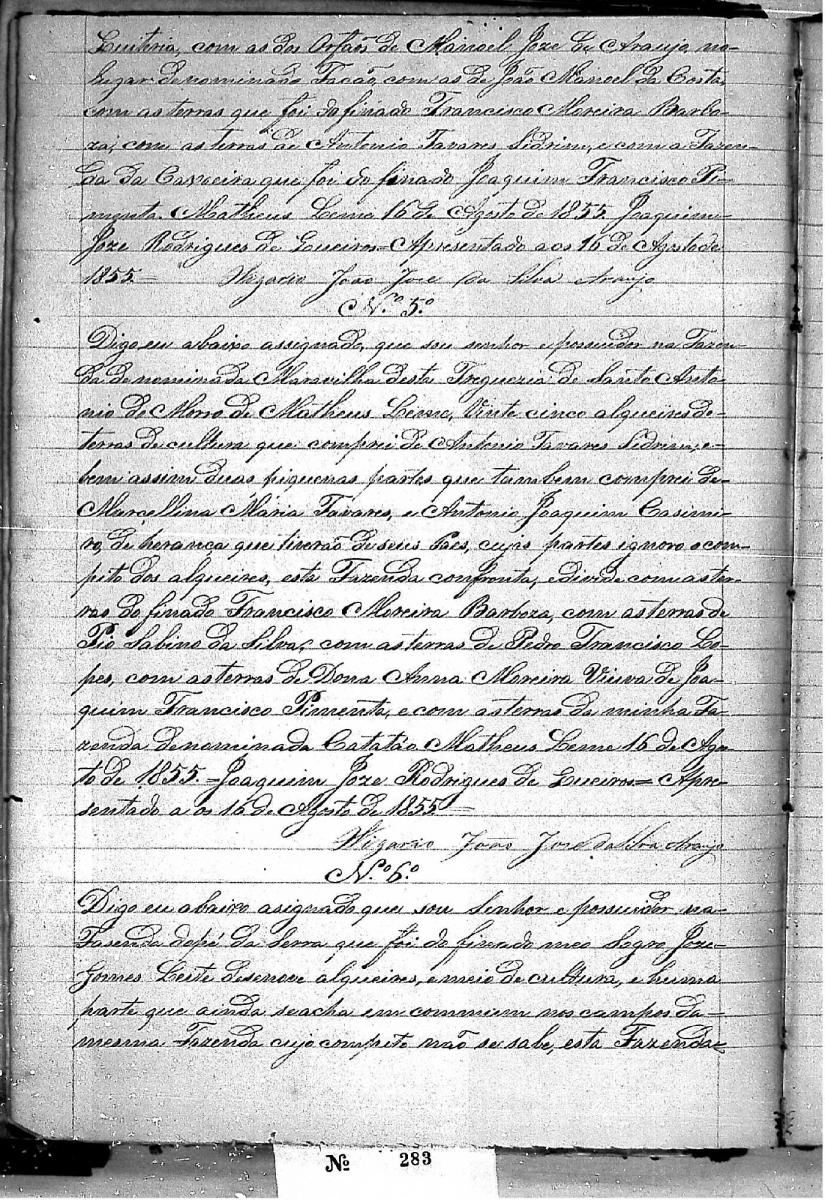 com as dos Orfãos de Manoel Joze de Araujo no
lugar denominado Facão, com as de João Manoel da Costa,
com as terras que foi do finado Francisco Moreira Barbo-
za, com as terras de Antonio Tavares Sidrim, e com a Fazen-
da da Cavoeira que foi do finado Joaquim Francisco Pi-
menta. Matheus Leme 16 de Agosto de 1855. Joaquim
Joze Rodrigues de Queiros = Apresentado aos 16 de Agosto de
1855 = Vigario João Jose da Silva Araujo
N.º 5.º
Digo eu abaixo assignado, que sou senhor e possuidor na Fazen-
da denominada Maravilha desta Freguezia de Santo Anto-
nio do Morro de Matheus Leme, Vinte cinco alqueires de
terras de cultura que comprei de Antonio Tavares Sidrim, e
bem assim duas piquenas partes que tambem comprei de
Marcellina Maria Tavares, e Antonio Joaquim Casimi-
ro, de herança que tiverão de seus Paes, cujas partes ignoro o com-
pito dos alqueires, esta Fazenda confronta, e divide com as ter-
ras do finado Francisco Moreira Barboza, com as terras de
Pio Sabino da Silva, com as terras de Pedro Francisco Lo-
pes, com as terras de Dona Anna Moreira Viuva de Joa-
quim Francisco Pimenta, e com as terras da minha Fa-
zenda denominada Catatão Matheus Leme 16 de Agos-
to de 1855. = Joaquim Joze Rodrigues de Queiros = Apre-
sentado a os 16 de Agosto de 1855 =
Vigario João Jose da Silva Araujo
N.º 6.º
Digo eu abaixo asignado que sou Senhor e possuidor na
Fasenda do pé da Serra que foi do finado meo Sogro Joze
Gomes Leite desenove alqueires, e meio de cultura, e huma
parte que ainda se acha em commum nos campos da
mesma Fazenda cujo compito não se sabe, esta Fazenda
Nº 283